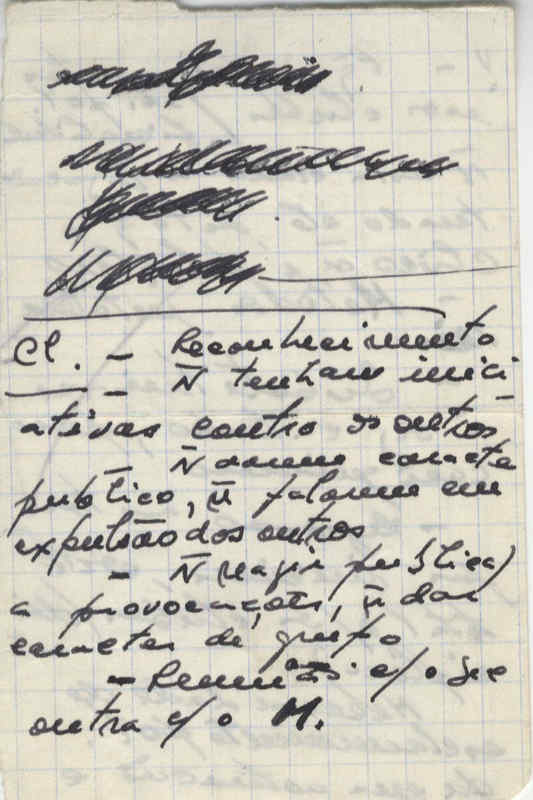 Cl. - Reconhecimento
- Ñ tenham inici
ativas contra os outros
- Ñ darem caracter
publico, ñ falarem em
expulsão dos outros
- Ñ reagir publica/
a provocações, ñ dar
caracter de grupo
- Reuniões c/ o Sec
outra c/ o M.